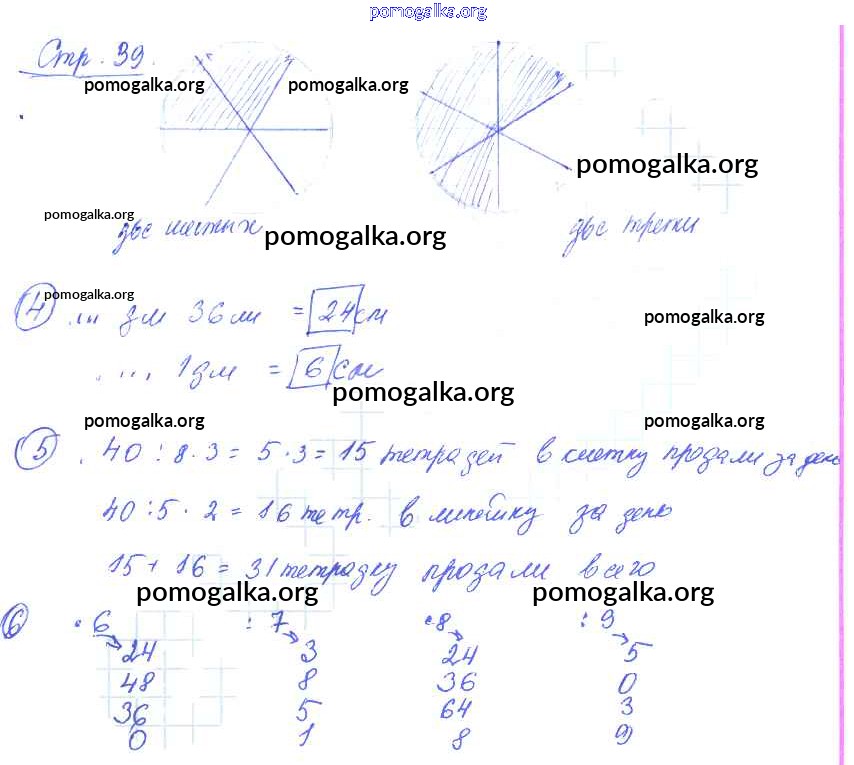 pomogalka.org
Стр. 39.
pomogalka.org pomogalka.org
pomogalka.org
pomogalka.org
две шестых две трети
pomogalka.org
4 pomogalka.org
... дм 36 мм = 24 см
pomogalka.org
... 1 дм = 6 см
pomogalka.org
pomogalka.org pomogalka.org
5 40 : 8 · 3 = 5 · 3 = 15 тетрадей в клетку продали за день
40 : 5 · 2 = 16 тетр. в линейку за день
15 + 16 = 31 тетрадку продали всего
pomogalka.org pomogalka.org
6 · 6 : 7 · 8 : 9
24 3 24 5
48 8 36 0
36 5 64 3
0 1 8 9